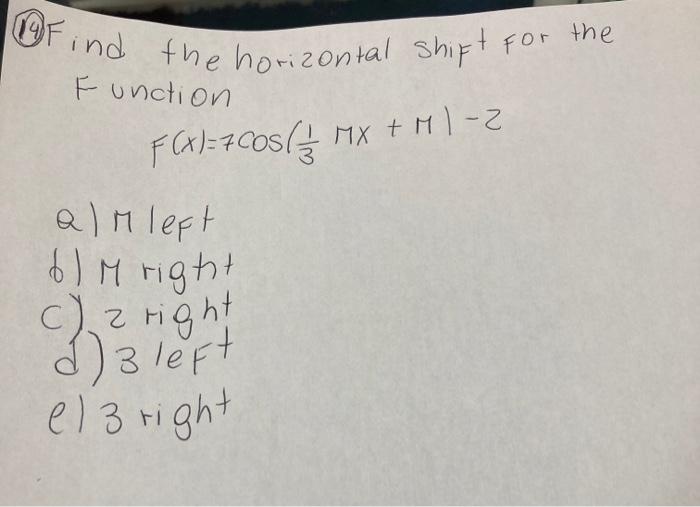 ⑭ Find the horizontal shift for the
Function
F(x)=7cos(1/3 πx + π) -2
a) π left
b) π right
c) 2 right
d) 3 left
e) 3 right